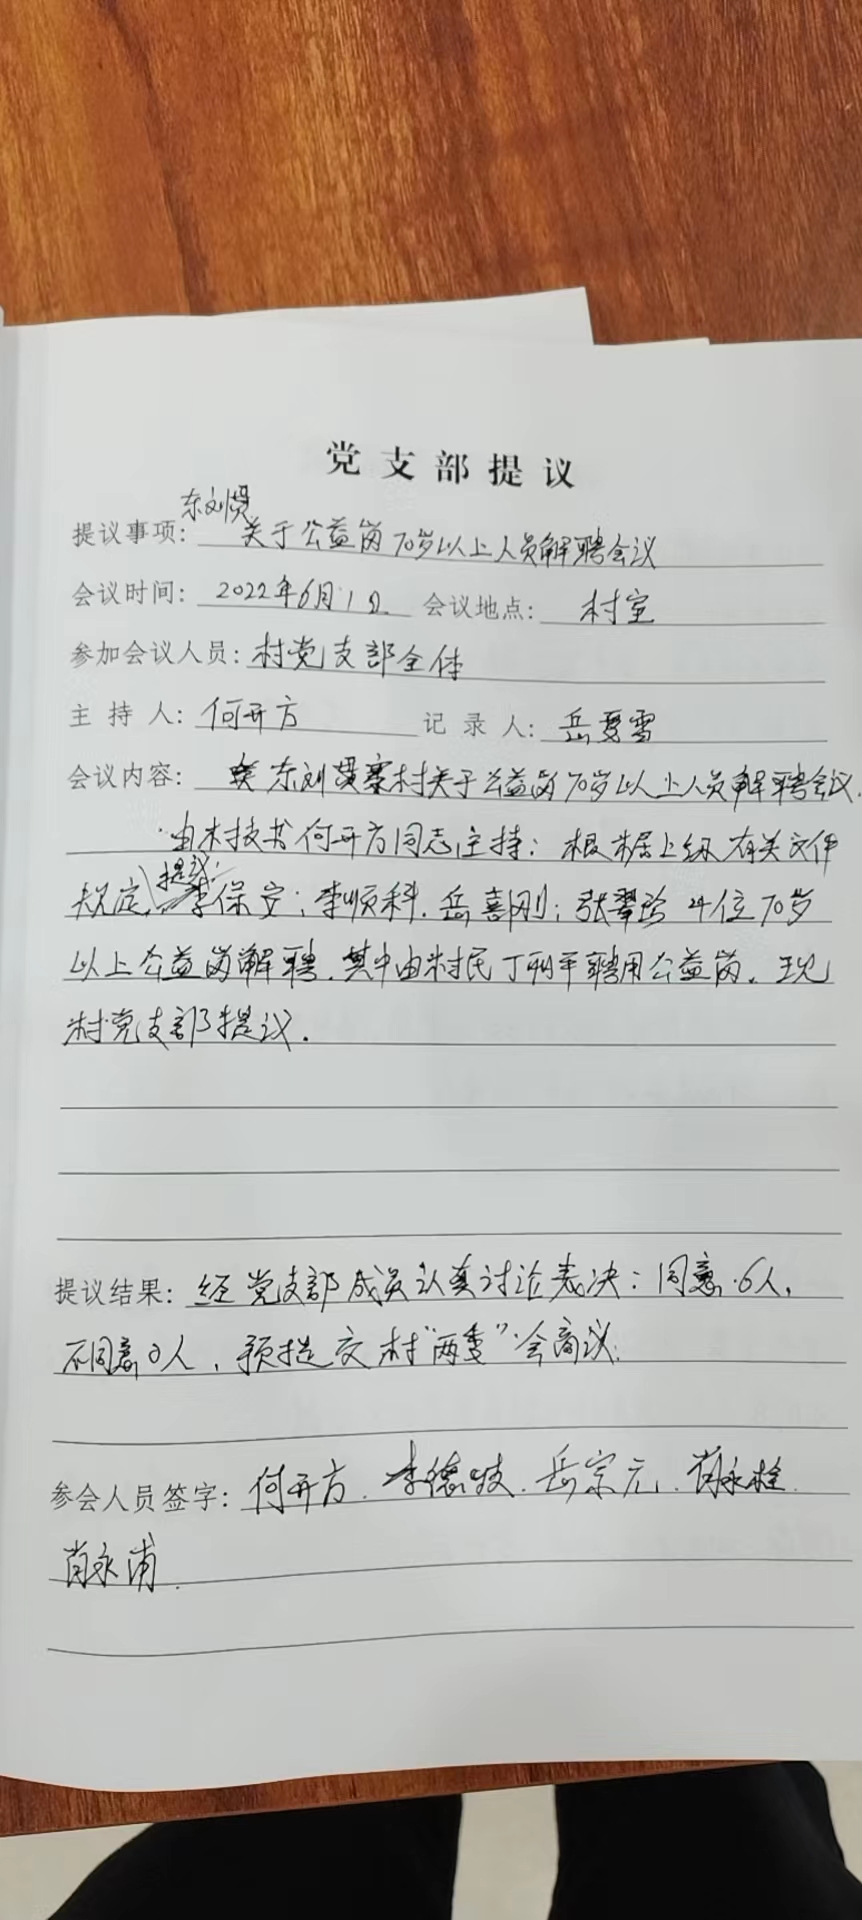 党支部提议
东刘贯
提议事项: 关于公益岗70岁以上人员解聘会议
会议时间: 2022年6月1日 会议地点: 村室
参加会议人员: 村党支部全体
主持人: 何开方 记录人: 岳夏雪
会议内容: 东刘贯寨村关于公益岗70岁以上人员解聘会议.
由村支书何开方同志主持: 根据上级有关文件
提议:
规定, 李保安; 李顺科. 岳喜刚; 张翠玲 4位70岁
以上公益岗解聘. 其中由村民丁 聘用公益岗. 现
村党支部提议.
提议结果: 经党支部成员认真讨论表决: 同意6人.
不同意0人, 预提交村"两委"会商议.
参会人员签字: 何开方. 李德 . 岳宗元. 肖永栓.
肖永甫.